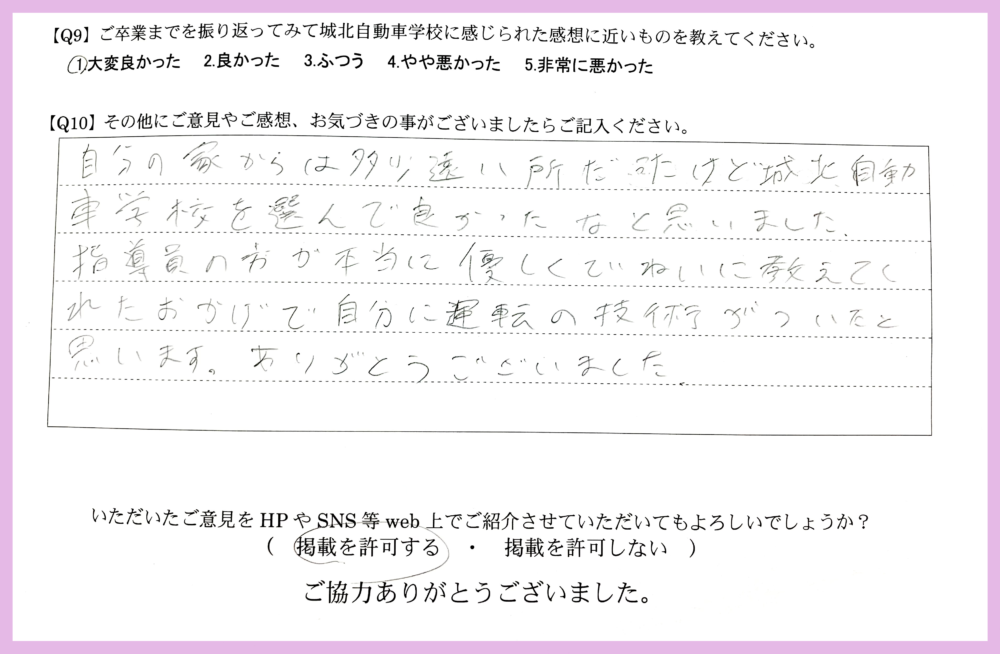 【Q9】ご卒業までを振り返ってみて城北自動車学校に感じられた感想に近いものを教えてください。
①大変良かった 2.良かった 3.ふつう 4.やや悪かった 5.非常に悪かった
【Q10】その他にご意見やご感想、お気づきの事がございましたらご記入ください。
自分の家からは多少遠い所だったけど城北自動
車学校を選んで良かったなと思いました.
指導員の方が本当に優しくていねいに教えてく
れたおかげで自分に運転の技術がついたと
思います。ありがとうございました.
いただいたご意見を HP や SNS 等 web 上でご紹介させていただいてもよろしいでしょうか？
( 掲載を許可する ・ 掲載を許可しない )
ご協力ありがとうございました。